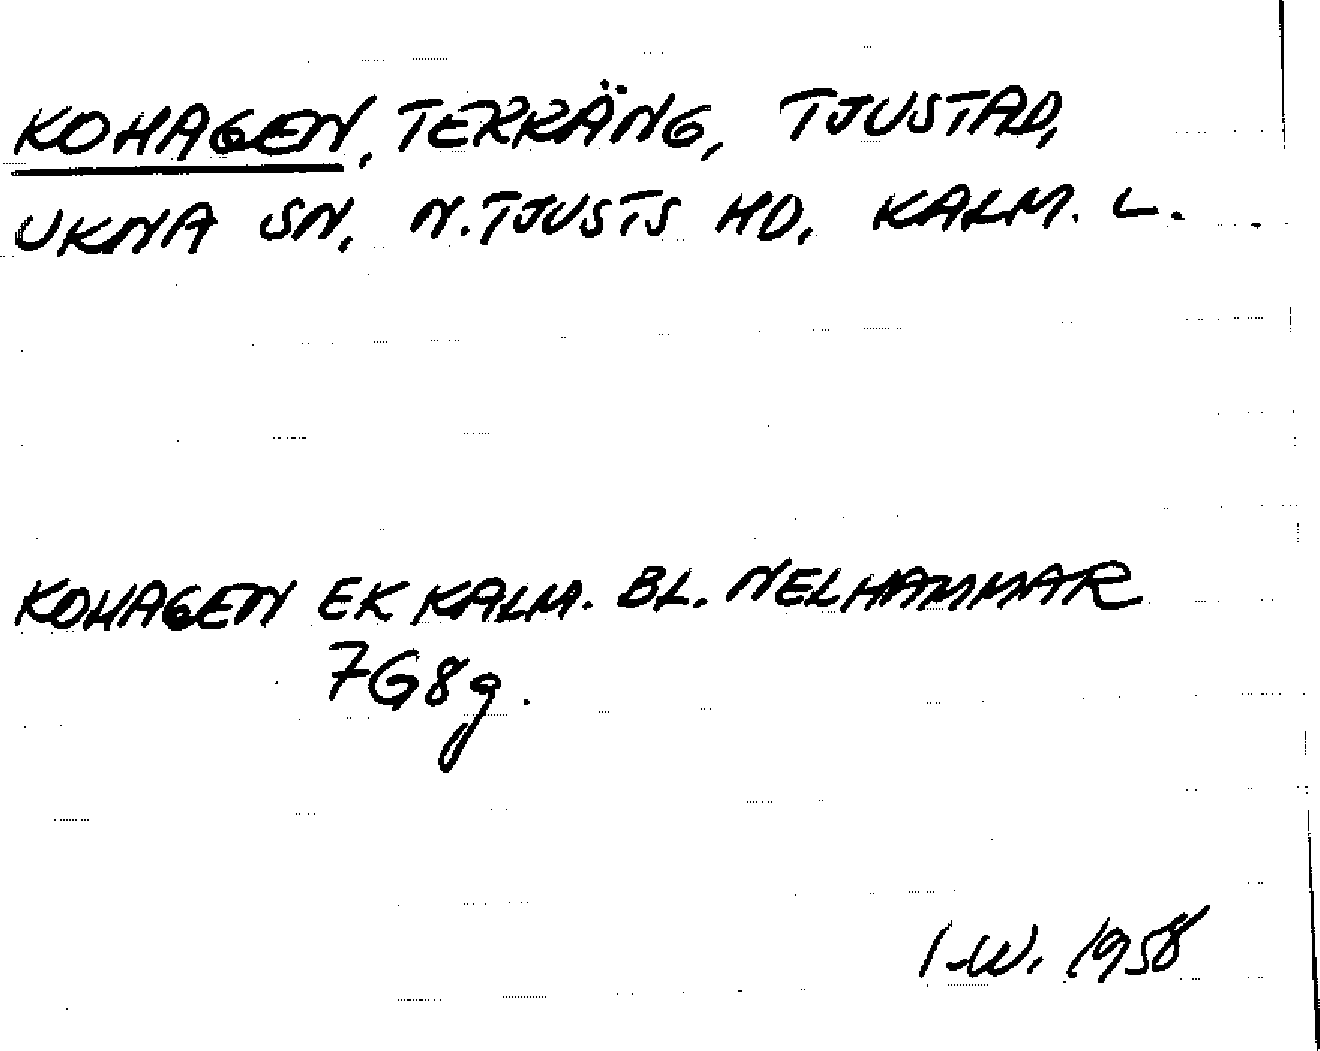 KOHAGEN, TERRÄNG, TJUSTAD,
UKNA SN, N. TJUSTS HD, KALM. L.
KOHAGEN EK KALM. BL. NELHAMMAR
7G8g.
I-W. 1958